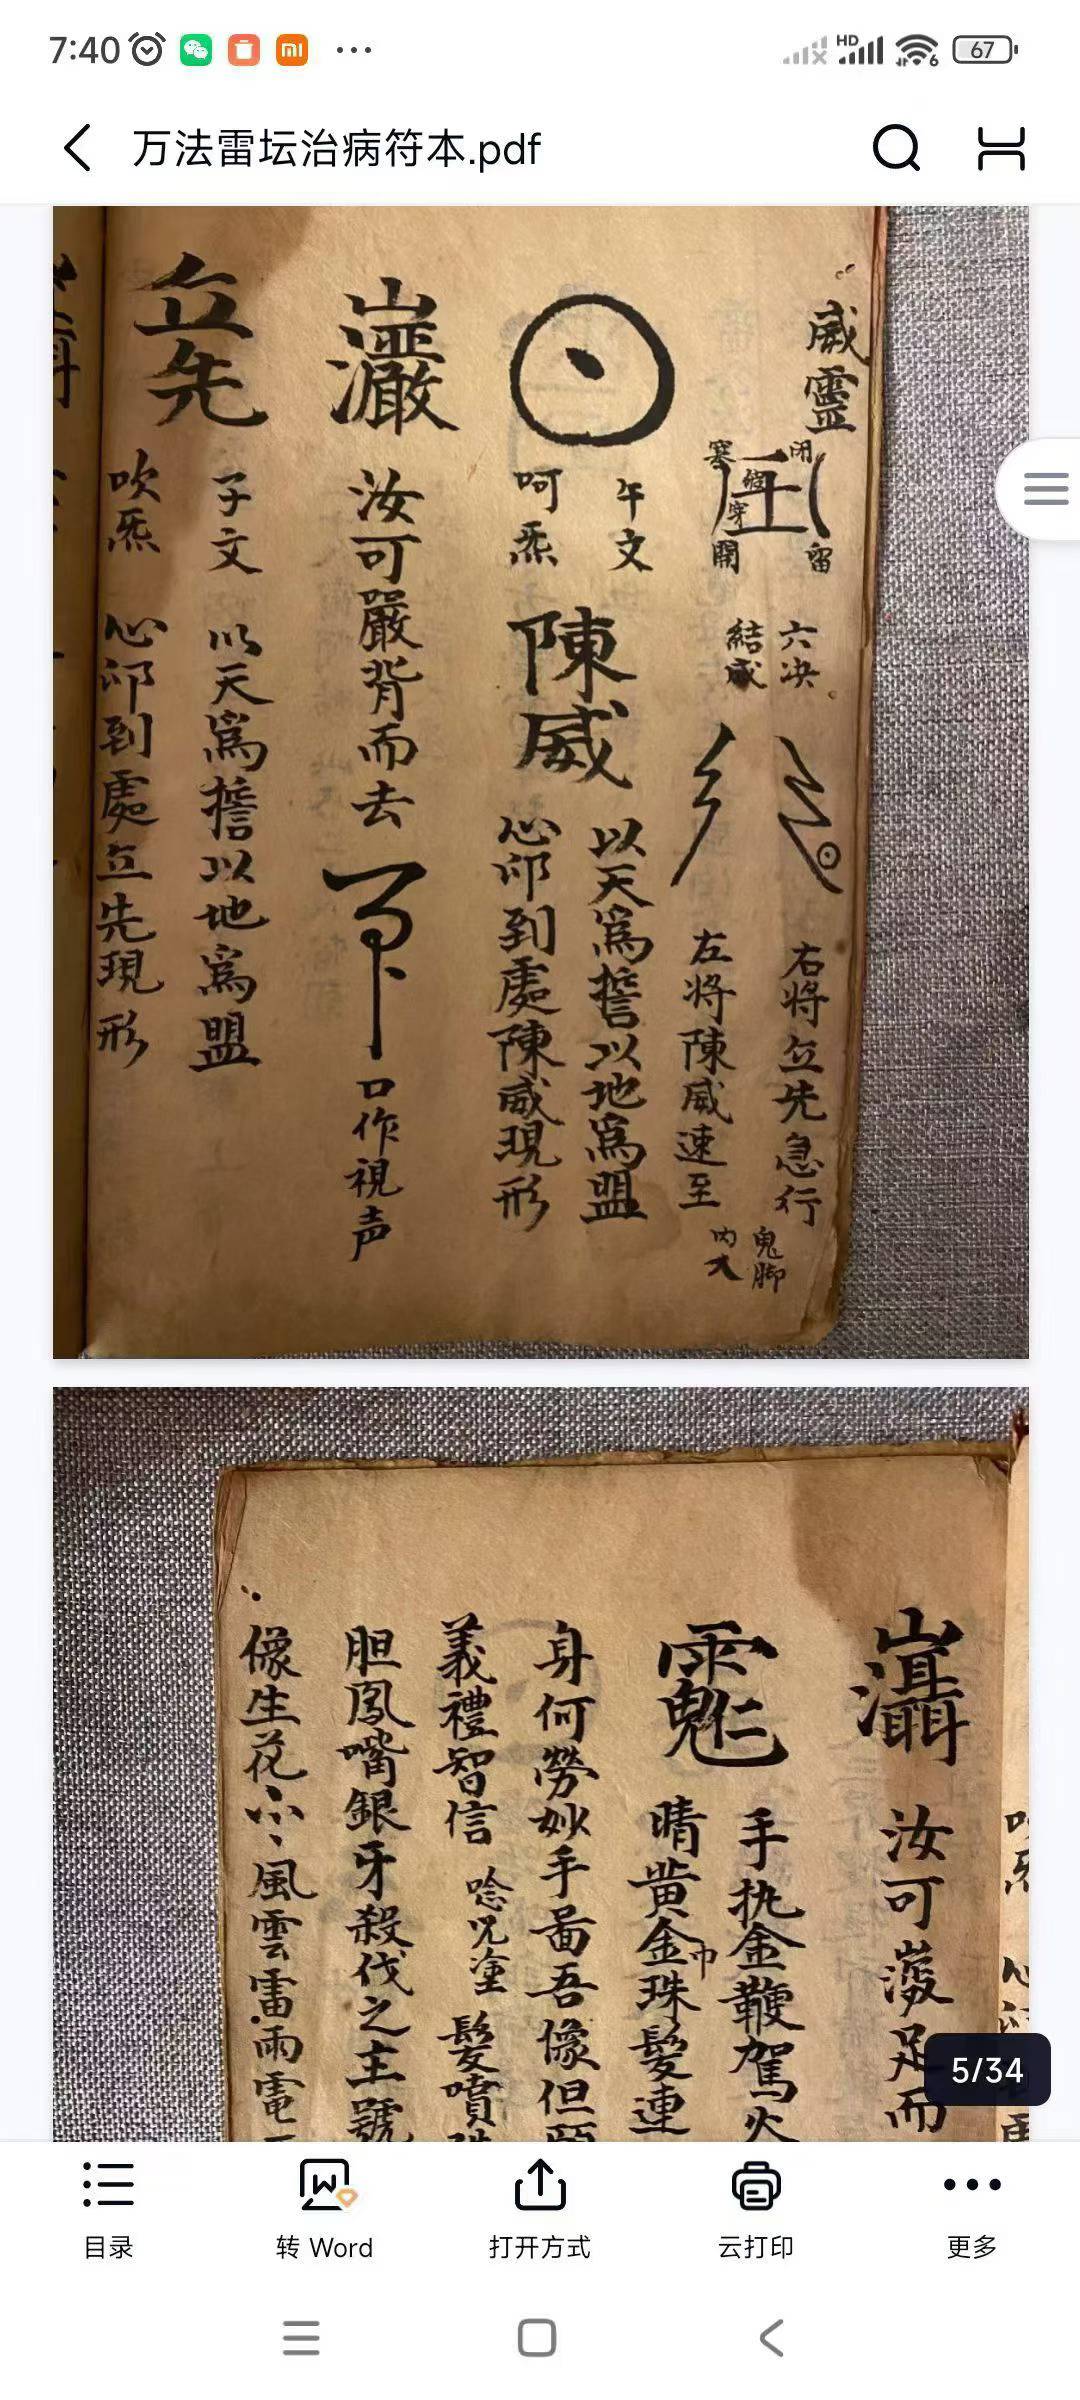 7:40
HD
6
67
万法雷坛治病符本.pdf
威靈
閉
塞
留
開
六决
結威
右将立先急行
左将陳威速至
鬼脚
内大
午文
呵炁
陳威
以天爲誓以地爲盟
心印到處陳威現形
汝可嚴背而去
口作視声
立先
子文
吹炁
以天爲誓以地爲盟
心印到處立先現形
汝可
足而
手执金鞭駕火
晴黄金珠髪連
巾
身何勞妙手啚吾像但
義禮智信
唸咒畫
髪噴
胆鳳嘴銀牙殺伐之主號
像生花
風雲雷雨電
5/34
目录
转 Word
打开方式
云打印
更多